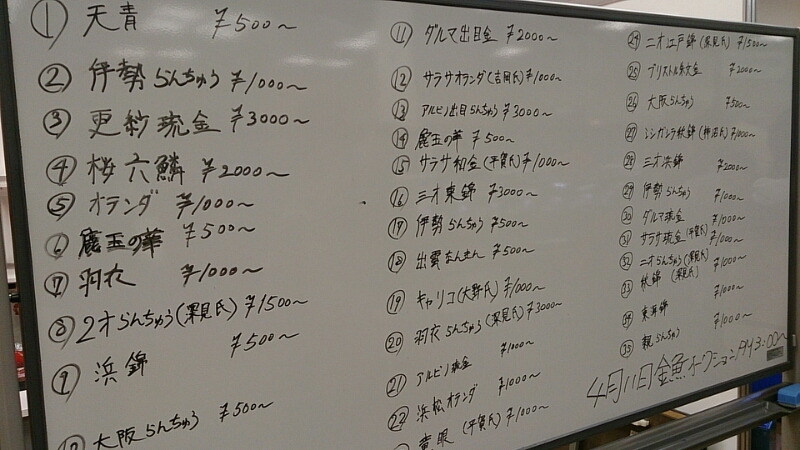 ① 天青 ¥500〜
② 伊勢らんちゅう ¥1000〜
③ 更紗琉金 ¥3000〜
④ 桜六鱗 ¥2000〜
⑤ オランダ ¥1000〜
⑥ 麗玉の華 ¥500〜
⑦ 羽衣 ¥1000〜
⑧ 2才らんちゅう(深見氏) ¥1500〜
⑨ 浜錦 ¥500〜
大阪らんちゅう ¥500〜
⑪ ダルマ出目金 ¥2000〜
⑫ サラサオランダ(吉岡氏) ¥1000〜
⑬ アルビノ出目らんちゅう ¥3000〜
⑭ 麗玉の華 ¥500〜
⑮ サラサ和金(平賀氏) ¥1000〜
⑯ 三才東錦 ¥3000〜
⑰ 伊勢らんちゅう ¥500〜
⑱ 出雲なんきん ¥500〜
⑲ キャリコ(大野氏) ¥1000〜
⑳ 羽衣らんちゅう(深見氏) ¥3000〜
㉑ アルビノ琉金 ¥1000〜
㉒ 浜松オランダ ¥1000〜
黄眼(平賀氏) ¥1000〜
㉔ 二才江戸錦(深見氏) ¥1500〜
㉕ ブリストル朱文金 ¥2000〜
㉖ 大阪らんちゅう ¥500〜
㉗ シンガシラ秋錦 ¥1000〜
㉘ 三才浜錦 ¥2000〜
㉙ 伊勢らんちゅう ¥1000〜
㉚ ダルマ琉金 ¥1000〜
㉛ サラサ琉金(平賀氏) ¥1000〜
㉜ 二才らんちゅう(深見氏) ¥1000〜
㉝ 秋錦(深見氏) ¥1000〜
㉞ 東錦 ¥1000〜
㉟ 親らんちゅう
4月11日金魚オークションPM3:00〜